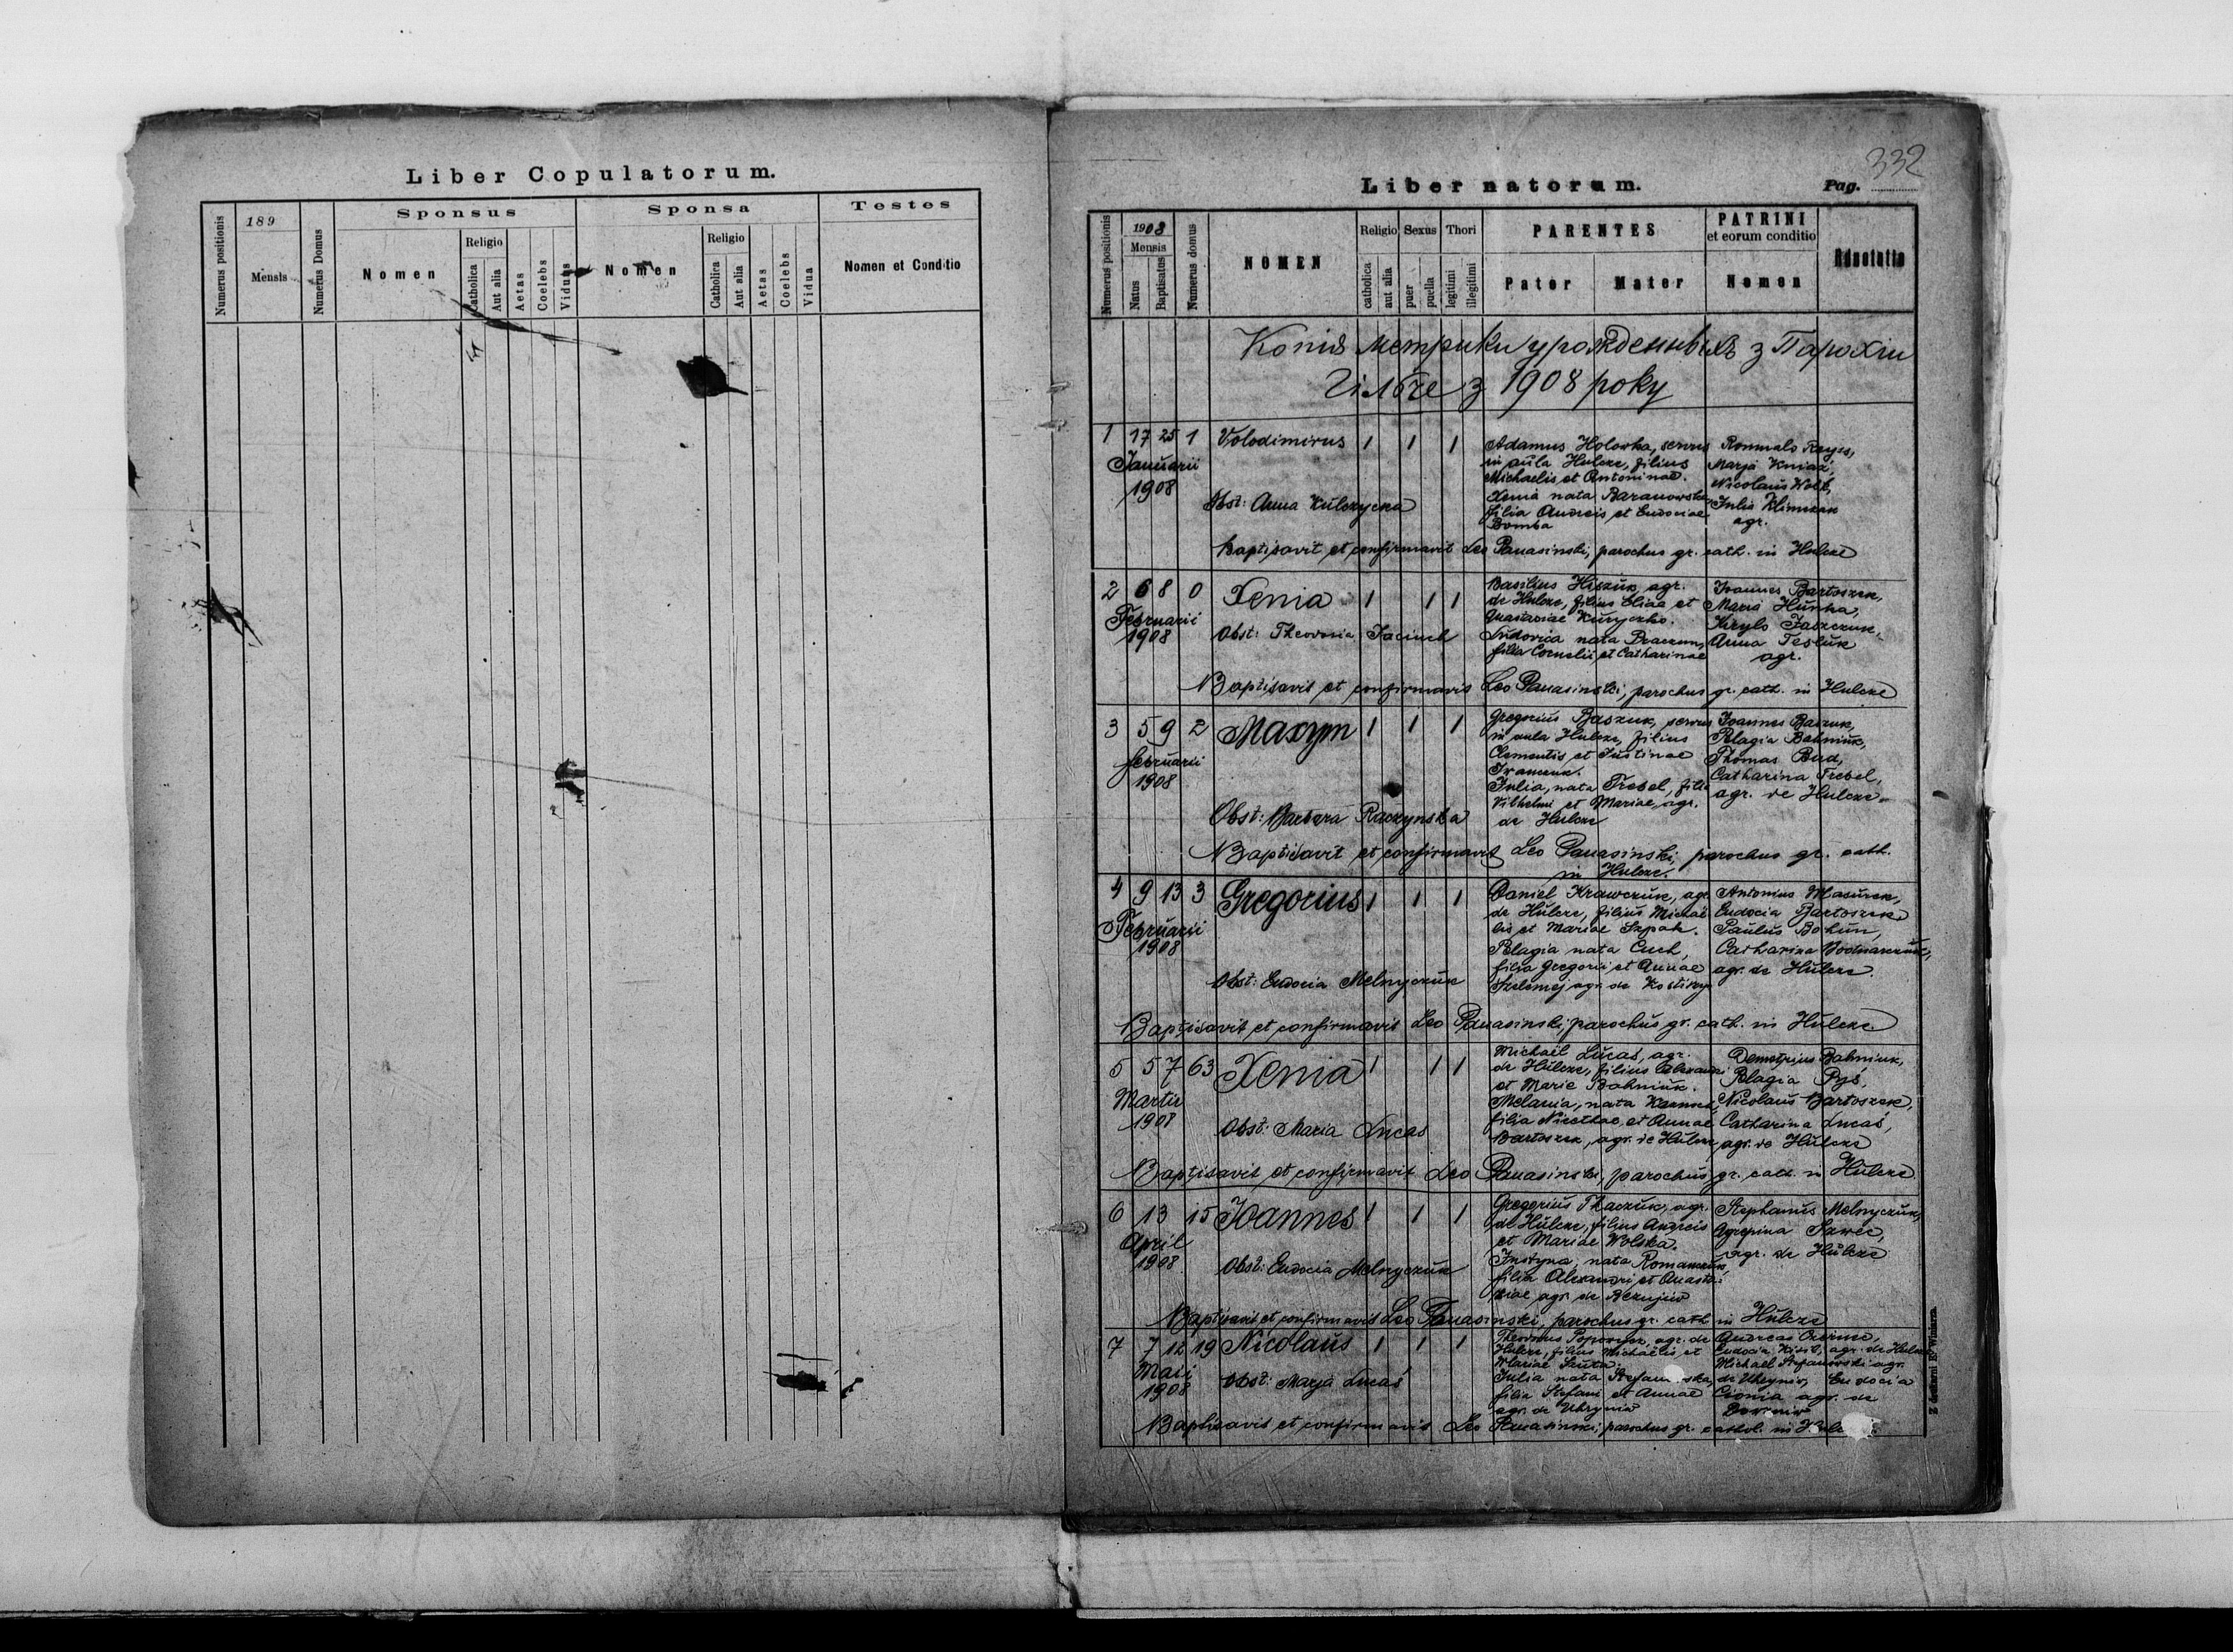 Liber Copulatorum.
Numerus positionis
189
Mensis
Numerus Domus
Sponsus
Nomen
Religio
Catholica
Aut alia
Aetas
Coelebs
Viduus
Sponsa
Nomen
Religio
Catholica
Aut alia
Aetas
Coelebs
Vidua
Testes
Nomen et Conditio
332
Liber natorum.
Pag.
Numerus positionis
1908
Mensis
Natus
Baptisatus
Numerus domus
NOMEN
Religio
catholica
aut alia
Sexus
puer
puella
Thori
legitimi
illegitimi
PARENTES
Pater
Mater
PATRINI
et eorum conditio
Nomen
Adnotatio
Копія метрики урожденныхъ з Парохіи
Гілче з 1908 року
1 17 25 1 Volodimirus 1 1 1
Januarii
1908
Obst: Anna Kulczycka
Adamus Holovka, servus
in aula Hulcze, filius
Michaelis et Antoninae.
Xenia nata Baranowska
filia Andreis et Eudociae
Bomba
Romualo
Marja Kniaź,
Nicolaus Wolk,
Julis Klimczak
agr.
Baptisavit et confirmavit Leo Panasinski, parochus gr. cath. in Hulcze
2 6 8 0 Xenia 1 1 1
Februarii
1908
Obst: Theodosia Jaciuch
Basilius Hiszuk agr.
de Hulcze, filius Eliae et
Anastasiae Kuryczko.
Ludovica nata
filia Cornelii et Catharinae
Joannes Bartoszek,
Maria Hunka,
Kirylo Jaszczuk,
Anna Tesluk
agr.
Baptisavit et confirmavit Leo Panasinski, parochus gr. cath. in Hulcze
3 5 9 2 Maxym 1 1 1
februarii
1908
Obst: Barbara Raczynska
Gregorius Baszuk, servus
in aula Hulcze, filius
Clementis et Justinae
Iwanczuk.
Julia, nata Trebel, filia
Vilhelmi et Mariae, agr.
de Hulcze
Joannes Baszuk,
Pelagia Bahniuk,
Thomas Bud,
Catharina Trebel,
agr. de Hulcze
Baptisavit et confirmavit Leo Panasinski, parochus gr. cath.
in Hulcze.
4 9 13 3 Gregorius 1 1 1
Februarii
1908
Obst: Eudocia Melnyczuk
Daniel Krawczuk, agr.
de Hulcze, filius Michae
lis et Mariae Szpak.
Pelagia nata Cuch,
filia Gregorii et Annae
agr. de
Antonius Masurek,
Eudocia Bartoszek
Paulus Bohun,
Catharina Bodnarczuk,
agr. de Hulcze.
Baptisavit et confirmavit Leo Panasinski, parochus gr. cath. in Hulcze
5 5 7 63 Xenia 1 1 1
Martii
1908
Obst: Maria Lucas
Michaël Lucaś, agr.
de Hulcze, filius Alexandri
et Marie Bahniuk.
Melania, nata
filia Nicethae et Annae
Bartoszek, agr. de Hulcze
Demetrius Bahniuk,
Pelagia Byś,
Nicolaus Bartoszek,
Catharina Lucaś,
agr. de Hulcze
Baptisavit et confirmavit Leo Panasinski, parochus gr. cath. in Hulcze
6 13 15 Joannes 1 1 1
April
1908
Obst: Eudocia Melnyczuk
Gregorius Tkaczuk, agr.
de Hulcze, filius Andreis
et Mariae Wolska.
Justyna, nata Romanczuk,
filia Alexandri et Anasta
siae agr. de
Stephanus Melnyczuk,
Agrepina Szwec,
agr. de Hulcze
Baptisavit et confirmavit Leo Panasinski, parochus gr. cath in Hulcze
7 7 12 19 Nicolaus 1 1 1
Maii
1908
Obst: Marja Lucaś
agr. de
Hulcze, filius Michaelis et
Mariae
Julia nata
filia Stefani et Annae
agr. de Uhrynia
Andreas
Eudocia agr. de Hulcze
Michael Stefanowski agr.
de Uhrynia, Eudocia
agr. de
Baptisavit et confirmavit Leo Panasinski, parochus gr. cathol. in